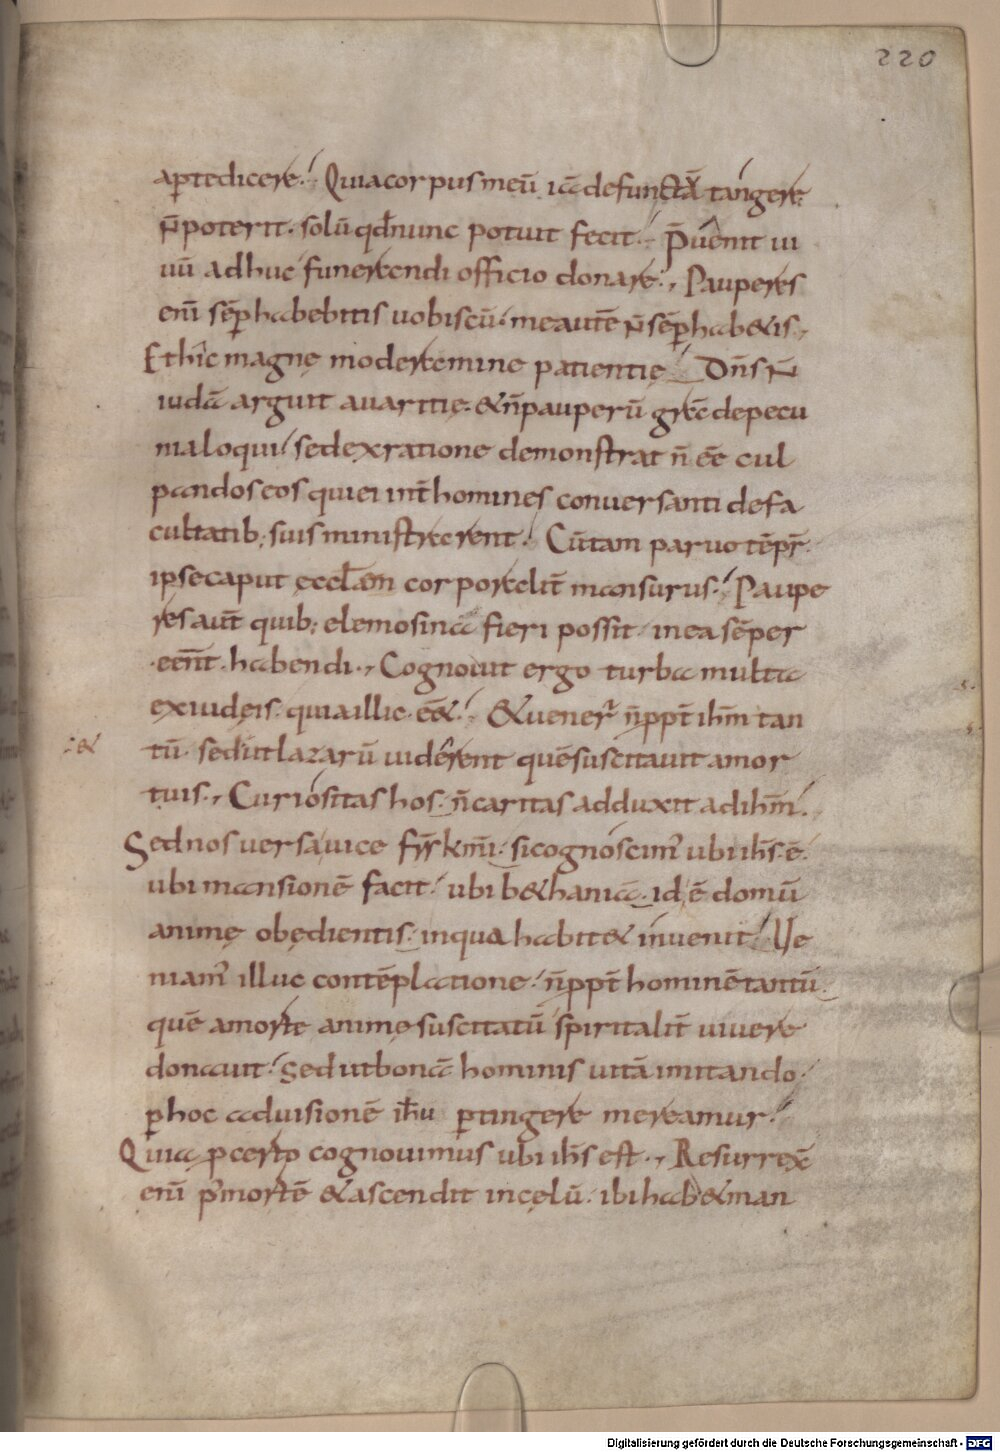 220
aptedicere! Quiacorpusmeū iā defunctā tangere
n̄ poterit. solū qđnunc potuit fecit. P̄uenit ui
uū adhuc funerandi officio donare., Pauperes
eni̅ sēp habebitis uobiscū. meautē n̄ sēp habetis.,
Et hic magnę moderamine patientię. Dn̄s n̄
iudā arguit auaritię. & n̄ pauperū grā depecu
nia loqui. sed ex ratione demonstrat n̄ eē cul
pandos eos qui ei int̄ homines conuersanti defa
cultatib; suis ministrarent! Cū tam paruo tēpr̄
ipse caput ęccłæ corporalit̄ mansurus! Paupe
res aut̄ quib; elemosina fieri possit in ea sēper
eēnt habendi., Cognouit ergo turba multa
ex iudęis. quia illic eē&! & uener̄ n̄ppt̄ ih̄m tan
: &
tū. sed ut lazarū uiderent quē suscitauit amor
tuis., Curiositas hos. n̄ caritas adduxit ad ih̄m.
Sed nos uersa uice fr̄s km̄i. si cognoscim̄ ubi ih̄s ē.
ubi mansionē facit. ubi b&hania. id ē domū
animę obędientis. in qua habit& inuenit! Ve
niam̄ illuc contēplatione. n̄ppt̄ hominē tantū.
quē a morte animę suscitatū spiritalit̄ uiuere
donauit. sed ut bonā hominis uitā imitando
phoc ad uisionē ih̄u ptingere mereamur!
Quia pcerto cognouimus ubi ih̄s est., Resurrex̄
eni̅ p̄mortē & ascendit in cęlū. ibi hab& man
Digitalisierung gefördert durch die Deutsche Forschungsgemeinschaft - DFG